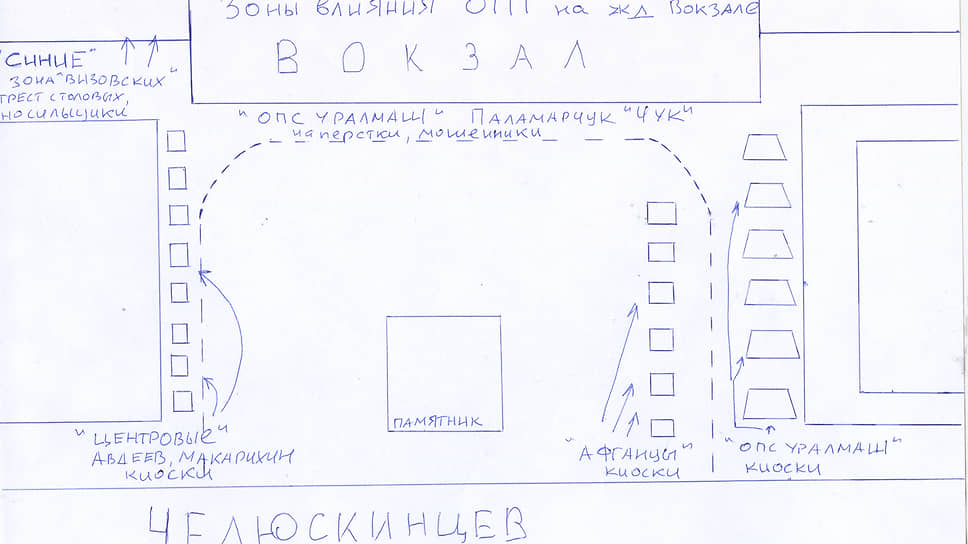 Зоны влияния ОПГ на жд вокзале
ВОКЗАЛ
"СИНИЕ"
ЗОНА "ВИЗОВСКИХ"
ТРЕСТ СТОЛОВЫХ,
НОСИЛЬЩИКИ
"ОПС УРАЛМАШ" ПАЛАМАРЧУК "ЧУК"
наперстки, мошенники
"ЦЕНТРОВЫЕ"
АВДЕЕВ, МАКАРИХИН
КИОСКИ
ПАМЯТНИК
"АФГАНЦЫ"
КИОСКИ
"ОПС УРАЛМАШ"
КИОСКИ
ЧЕЛЮСКИНЦЕВ